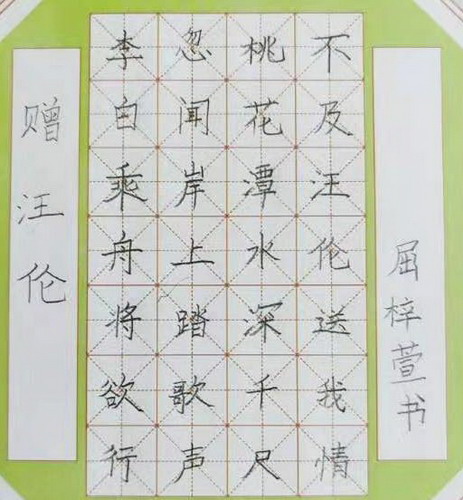 赠汪伦
李白乘舟将欲行
忽闻岸上踏歌声
桃花潭水深千尺
不及汪伦送我情
屈梓萱书